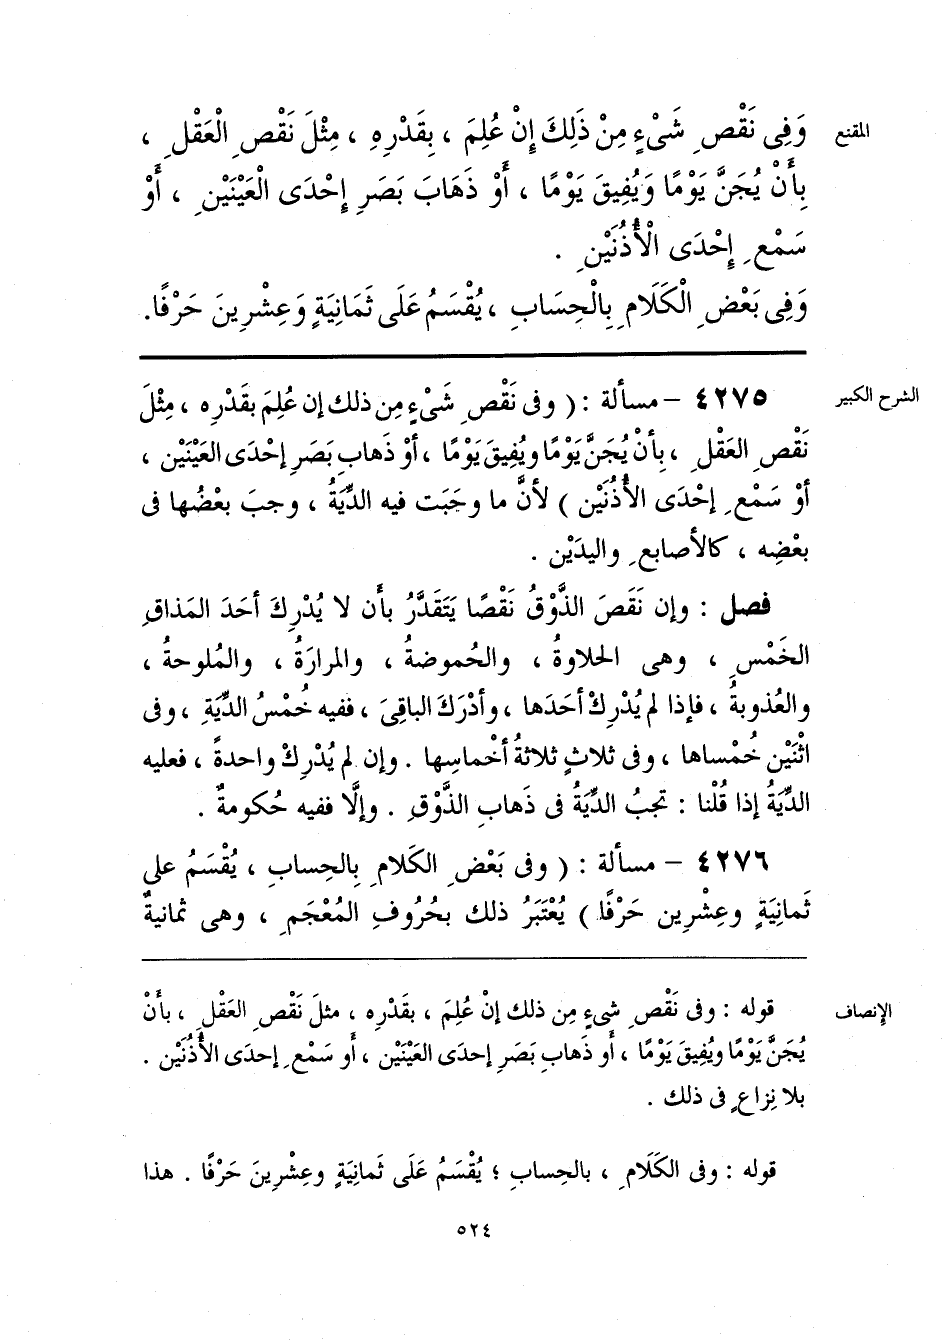 المقنع
وَفِى نَقْصِ شَىْءٍ مِنْ ذَلِكَ إِنْ عُلِمَ ، بِقَدْرِهِ ، مِثْلَ نَقْصِ الْعَقْلِ ،
بِأَنْ يُجَنَّ يَوْمًا وَيُفِيقَ يَوْمًا ، أَوْ ذَهَابَ بَصَرِ إِحْدَى الْعَيْنَيْنِ ، أَوْ
سَمْعِ إِحْدَى الْأُذُنَيْنِ .
وَفِى بَعْضِ الْكَلَامِ بِالْحِسَابِ ، يُقْسَمُ عَلَى ثَمَانِيَةٍ وَعِشْرِينَ حَرْفًا.
الشرح الكبير
٤٢٧٥ – مسألة : ( وفى نَقْصِ شَىْءٍ مِن ذلك إن عُلِمَ بقَدْرِه ، مِثْلَ
نَقْصِ العَقْلِ ، بأنْ يُجَنَّ يَوْمًا ويُفِيقَ يَوْمًا ، أوْ ذَهابِ بَصَرِ إحْدَى العَيْنَيْن ،
أوْ سَمْعِ إحْدَى الأُذُنَيْن ) لأنَّ ما وجَبَت فيه الدِّيَةُ ، وجبَ بعْضُها فى
بعْضِه ، كالأصابعِ واليدَيْن .
فصل : وإن نَقَصَ الذَّوْقُ نَقْصًا يَتَقَدَّرُ بأن لا يُدْرِكَ أحَدَ المَذاقِ
الخَمْسِ ، وهى الحلاوةُ ، والحُموضةُ ، والمرارَةُ ، والمُلوحةُ ،
والعُذوبةُ ، فإذا لم يُدْرِكْ أحَدَها ، وأدْرَكَ الباقِىَ ، ففيه خُمْسُ الدِّيَةِ ، وفى
اثْنَيْن خُمْساها ، وفى ثلاثٍ ثلاثةُ أخْماسِها . وإن لم يُدْرِكْ واحدةً ، فعليه
الدِّيَةُ إذا قُلْنا : تجبُ الدِّيَةُ فى ذَهابِ الذَّوْقِ . وإلَّا ففيه حُكومةٌ .
٤٢٧٦ – مسألة : ( وفى بَعْضِ الكَلامِ بالحِسابِ ، يُقْسَمُ على
ثَمانِيَةٍ وعِشْرِين حَرْفًا ) يُعْتَبَرُ ذلك بحُرُوفِ المُعْجَمِ ، وهى ثمانيةٌ
الإنصاف
قوله : وفى نَقْصِ شىءٍ مِن ذلك إنْ عُلِمَ ، بقَدْرِه ، مثلَ نَقْصِ العَقْلِ ، بأنْ
يُجَنَّ يَوْمًا ويُفِيقَ يَوْمًا ، أو ذَهابِ بَصَرِ إحدَى العَيْنَيْن ، أو سَمْعِ إحدَى الأُذُنَيْن .
بلا نِزاعٍ فى ذلك .
قوله : وفى الكَلَامِ ، بالحِسابِ ؛ يُقْسَمُ عَلَى ثَمانِيَةٍ وعِشْرِينَ حَرْفًا . هذا
٥٢٤